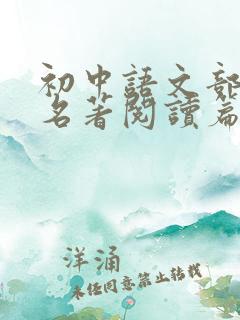 初中語文部
名著閱讀篇
洋涌
未經同意禁止轉載